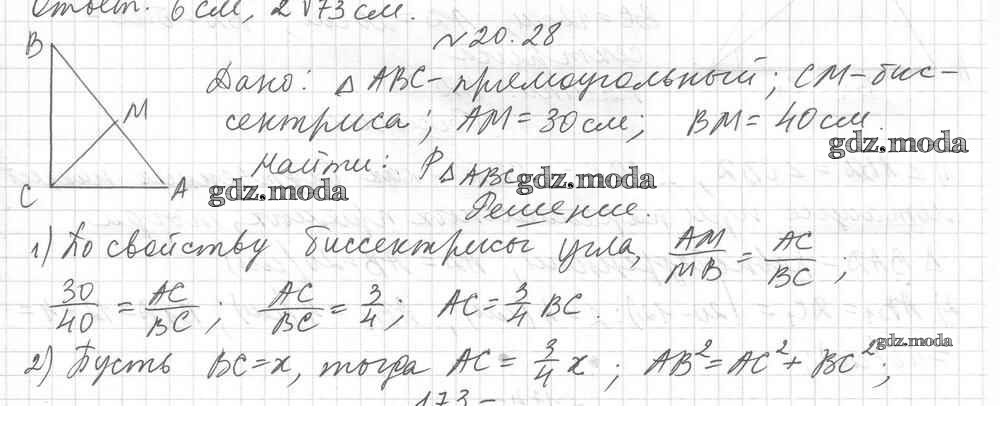 Ответ: 6 см, 2√73 см.
№20.28
B
M
C
A
Дано: △ABC - прямоугольный; CM - бис-
сектриса; AM = 30 см; BM = 40 см.
gdz.moda
Найти: P△ABC
gdz.moda
gdz.moda
Решение.
1) По свойству биссектрисы угла, AM/MB = AC/BC;
30/40 = AC/BC; AC/BC = 3/4; AC = 3/4 BC.
2) Пусть BC = x, тогда AC = 3/4 x; AB² = AC² + BC²;
gdz.moda